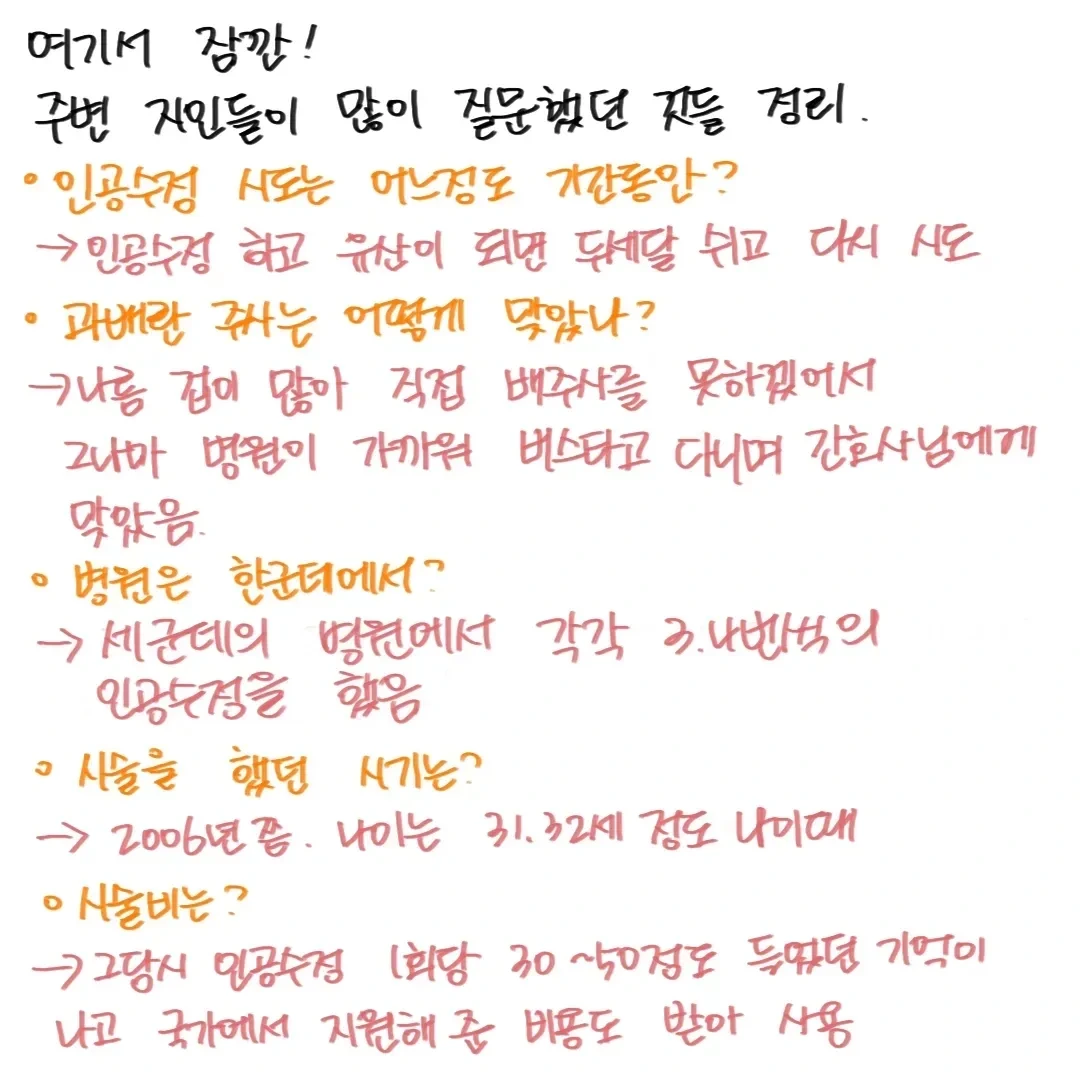 여기서 잠깐!
주변 지인들이 많이 질문했던 것들 정리.
• 인공수정 시도는 어느정도 기간동안?
→ 인공수정 하고 유산이 되면 두세달 쉬고 다시 시도
• 과배란 주사는 어떻게 맞았나?
→ 나름 겁이 많아 직접 배주사를 못하겠어서
그나마 병원이 가까워 버스타고 다니며 간호사님에게
맞았음.
• 병원은 한군데에서?
→ 세군데의 병원에서 각각 3.4번씩의
인공수정을 했음
• 시술을 했던 시기는?
→ 2006년쯤. 나이는 31.32세 정도 나이때
• 시술비는?
→ 그당시 인공수정 1회당 30~50정도 들었던 기억이
나고 국가에서 지원해준 비용도 받아 사용